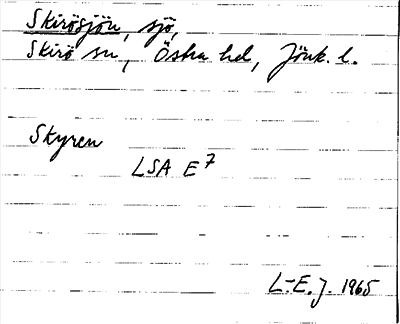 Skirösjön, sjö,
Skirö sn, Östra hd, Jönk. l.
Skyren
LSA E7
L-E. J. 1965